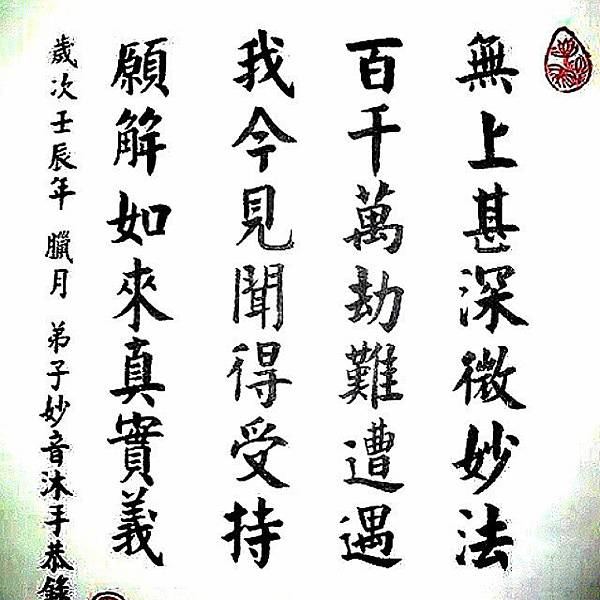 無上甚深微妙法
百千萬劫難遭遇
我今見聞得受持
願解如來真實義
歲次壬辰年 臘月 弟子妙音沐手恭錄